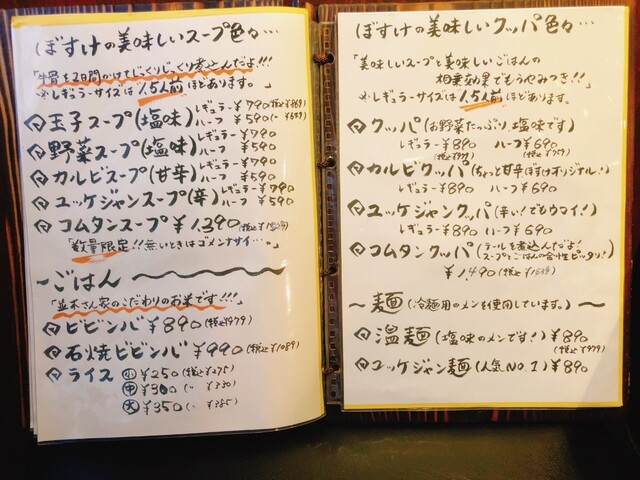 ぼすけの美味しいスープ色々…
「牛骨を2日間かけてじっくりじっくり煮込んだよ!!!
※レギュラーサイズは1.5人前ほどあります。
玉子スープ(塩味) レギュラー¥790(税込¥869)
ハーフ¥590(〃¥649)
野菜スープ(塩味) レギュラー¥790
ハーフ¥590
カルビスープ(甘辛) レギュラー¥790
ハーフ¥590
ユッケジャンスープ(辛) レギュラー¥790
ハーフ¥590
コムタンスープ ¥1,390
「数量限定!!無いときはゴメンナサイ…。」
ごはん
「並木さん家のこだわりのお米です!!!」
ビビンバ ¥890(税込¥979)
石焼ビビンバ ¥990(税込¥1089)
ライス 小 ¥250(税込¥275)
中 ¥300(〃 ¥330)
大 ¥350(〃 ¥385)
ぼすけの美味しいクッパ色々…
「美味しいスープと美味しいごはんの
相乗効果でもうやみつき!!」
※レギュラーサイズは1.5人前ほどあります。
クッパ(お野菜たっぷり塩味です)
レギュラー¥890 ハーフ¥690
(税込¥979) (税込¥759)
カルビクッパ(ちょっと甘辛ぼすけオリジナル!)
レギュラー¥890 ハーフ¥690
ユッケジャンクッパ(辛い!でもウマイ!)
レギュラー¥890 ハーフ¥690
コムタンクッパ(テールを煮込んだよ!
スープとごはんの合性ピッタリ!)
¥1,490(税込¥1639)
麺(冷麺用のメンを使用しています。)
温麺(塩味のメンです!)¥890
(税込¥979)
ユッケジャン麺(人気NO.1)¥890